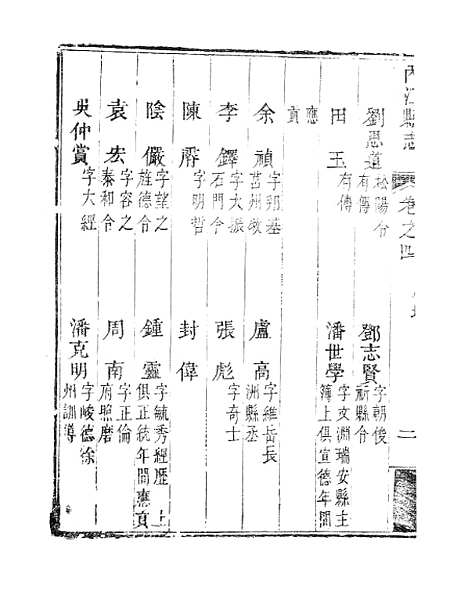 內江縣志 卷之四 二
劉思道 松陽令有傳 鄧志賢 字朝俊祈縣令
田玉 有傳 潘世學 字文淵瑞安縣主簿上俱宣德年間
應貢
余禎 字邦基莒州教 盧高 字維岳長洲縣丞
李鐸 字大振石門令 張彪 字奇士
陳爵 字明哲 封偉
陰儼 字望之旌德令 鍾靈 字毓秀經歷上俱正統年間應貢
袁宏 字容之泰和令 周南 字正倫府照磨
吳仲賞 字大經 潘克明 字峻德徐州訓導